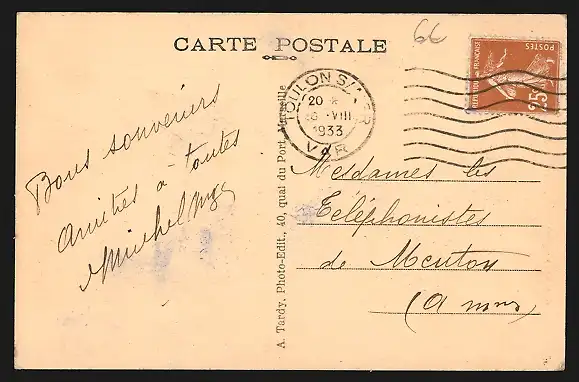 66
CARTE POSTALE
POSTES
REPUBLIQUE FRANÇAISE
25c
TOULON S/MER
20
16 -VIII
1933
VAR
Bons souvenirs
amitiés a toutes
Michel
A. Tardy, Photo-Edit., 40, quai du Port, Marseille
Mesdames les
Téléphonistes
de Menton
(A mmes)